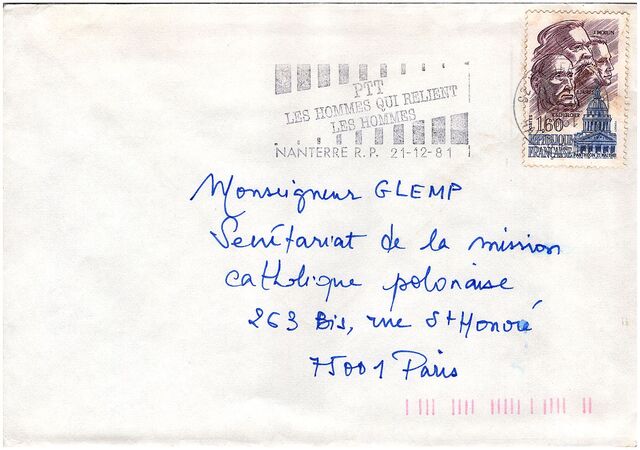 J. MOULIN
PTT
LES HOMMES QUI RELIENT
LES HOMMES
NANTERRE R.P. 21-12-81
J. JAURES
V. SCHOELCHER
1,60
REPUBLIQUE
FRANÇAISE
PANTHEON 21 MAI 1981
Monseigneur GLEMP
Secrétariat de la mission
catholique polonaise
263 Bis, rue St Honoré
75001 Paris